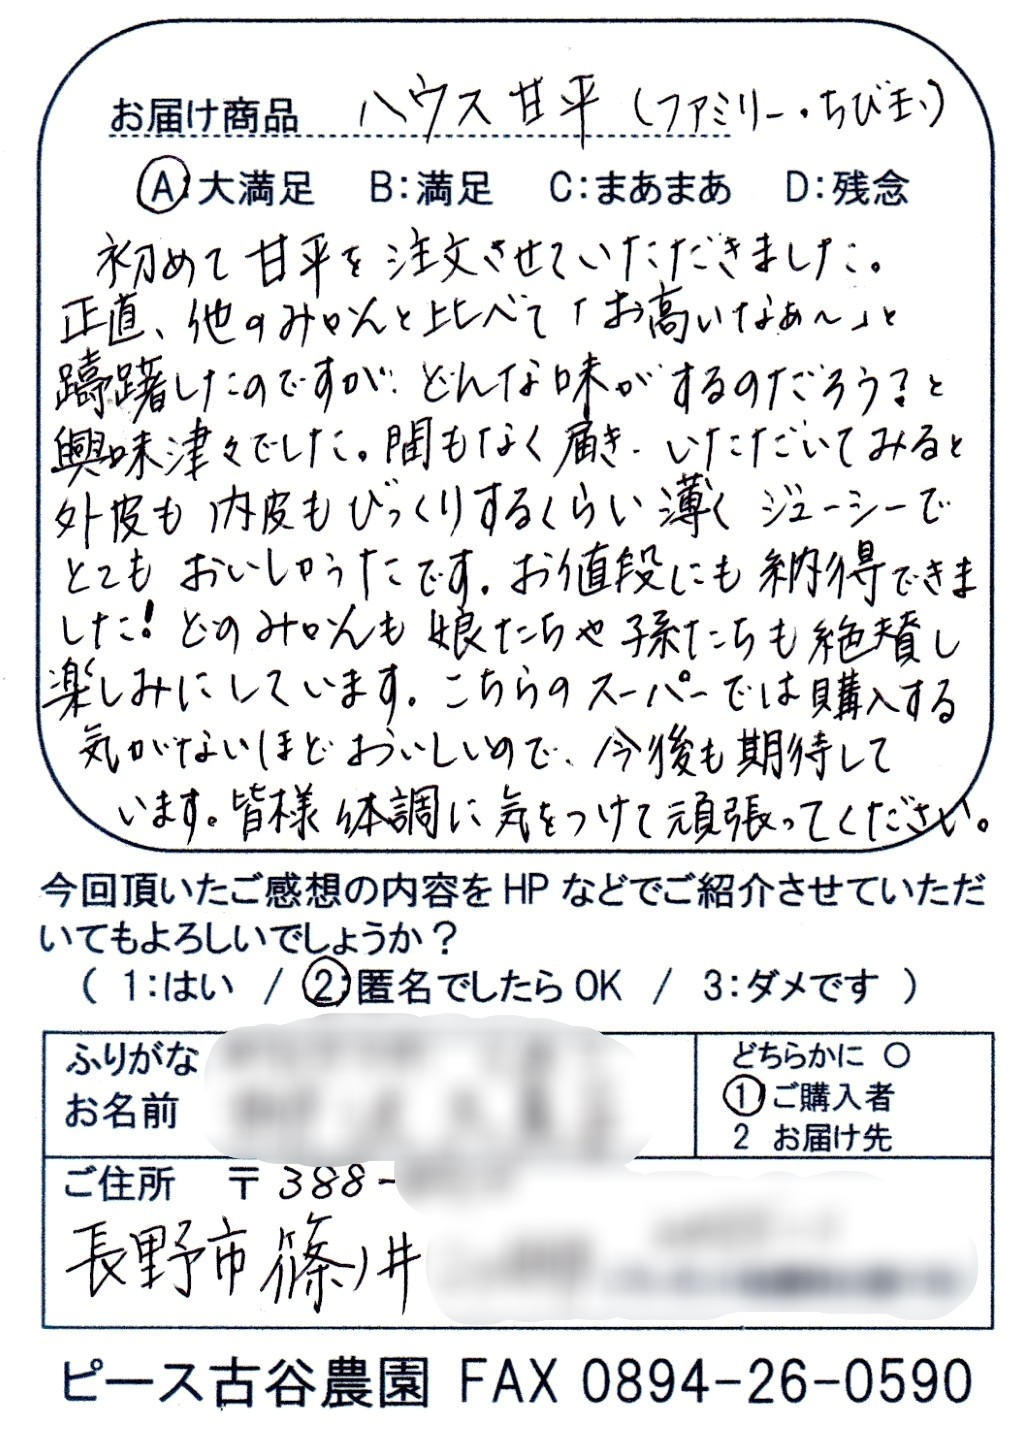 お届け商品 ハウス甘平(ファミリー・ちび玉)
A:大満足 B:満足 C:まあまあ D:残念
初めて甘平を注文させていただきました。
正直、他のみかんと比べて「お高いなぁ〜」と
躊躇したのですが、どんな味がするのだろう?と
興味津々でした。間もなく届き、いただいてみると
外皮も内皮もびっくりするくらい薄くジューシーで
とてもおいしゅうたです。お値段にも納得できま
した!どのみかんも娘たちや孫たちも絶賛し
楽しみにしています。こちらのスーパーでは購入する
気がないほどおいしいので、今後も期待して
います。皆様体調に気をつけて頑張ってください。
今回頂いたご感想の内容をHPなどでご紹介させていただ
いてもよろしいでしょうか?
( 1:はい / 2:匿名でしたらOK / 3:ダメです )
ふりがな
お名前
どちらかに ○
1 ご購入者
2 お届け先
ご住所 〒388-
長野市篠ノ井
ピース古谷農園 FAX 0894-26-0590